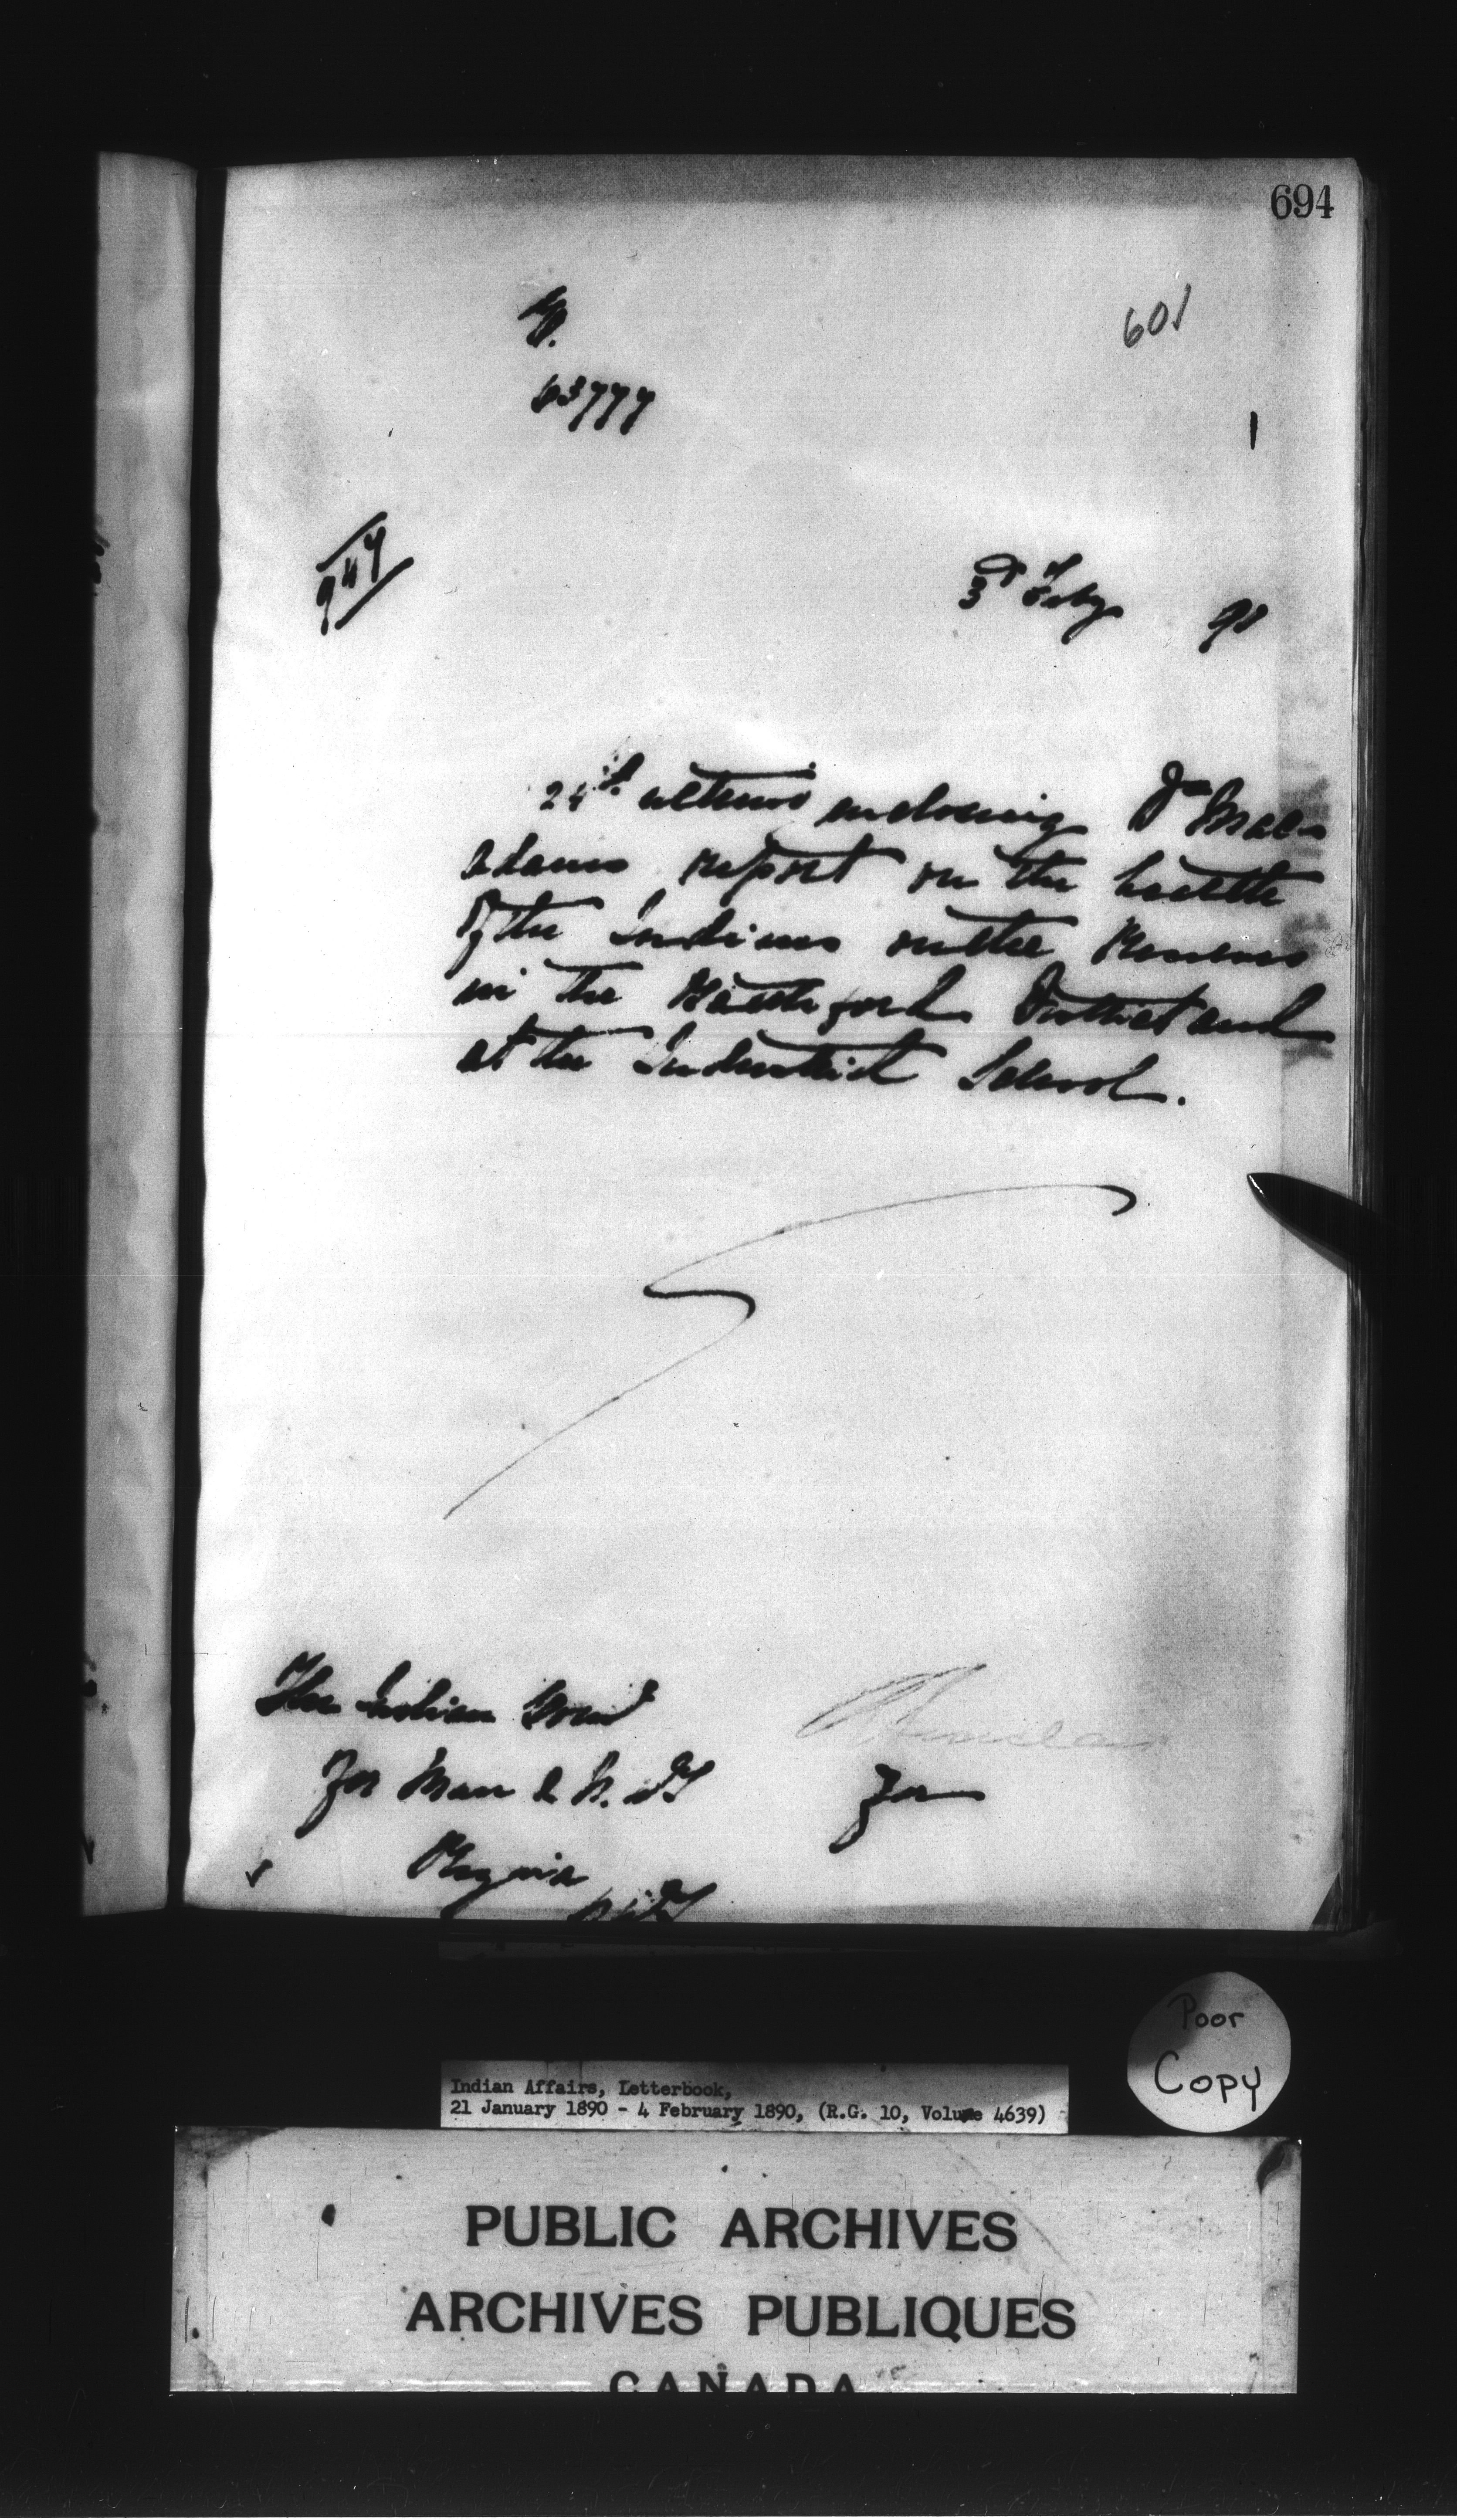 694
601
63777
947
3d Feby 90
24th ultimo enclosing Dr Mac
adams report on the health
of the Indians on the Reserves
in the Battleford District and
at the Industrial School.
The Indian Comr
for Man & N.W.T
For
Regina
N.W.T
Poor
Copy
Indian Affairs, Letterbook,
21 January 1890 - 4 February 1890, (R.G. 10, Volume 4639)
PUBLIC ARCHIVES
ARCHIVES PUBLIQUES
CANADA